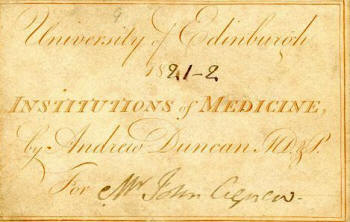 University of Edinburgh
1821-2
INSTITUTIONS of MEDICINE,
by Andrew Duncan. M.D. & P.
For Mr John Agnew.